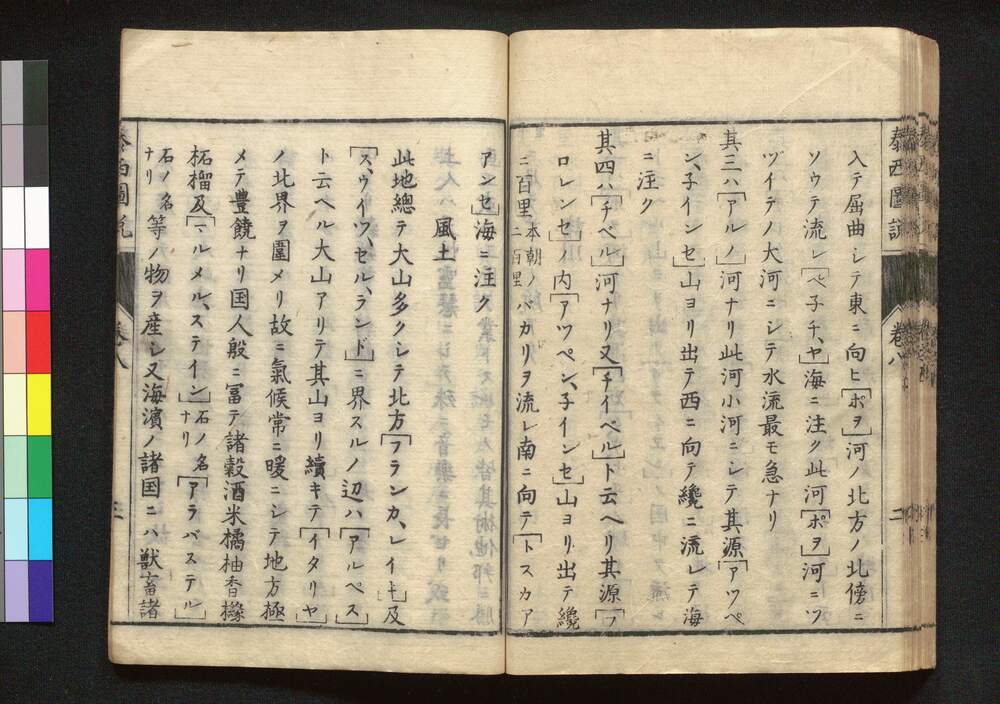 泰西圖説
巻八
二
入テ屈曲シテ東ニ向ヒ「ポヲ」河ノ北方ノ北傍ニ
ソウテ流レ「ペ子チ、ヤ」海ニ注ク此河「ポヲ」河ニツ
ヅイテノ大河ニシテ水流最モ急ナリ
其三ハ「アルノ」河ナリ此河小河ニシテ其源「アツペ
ン、子インセ」山ヨリ出テ西ニ向テ纔ニ流レテ海
ニ注ク
其四ハ「チベル」河ナリ又「チイベル」ト云ヘリ其源「フ
ロレンセ」ノ内「アツペン、子インセ」山ヨリ出テ纔
ニ百里本朝ノ二百里バカリヲ流レ南ニ向テ「トスカア
アンセ」海ニ注ク
風土
此地總テ大山多クシテ北方「フランカ、レイキ」及
「ス、ウイツ、セル、ランド」ニ界スルノ辺ハ「アルペス」
ト云ヘル大山アリテ其山ヨリ續キテ「イタリヤ」
ノ北界ヲ圍メリ故ニ氣候常ニ暖ニシテ地方極
メテ豊饒ナリ国人般ニ冨テ諸穀酒米橘柚香櫞
柘榴及「マルメル、ステイン」石ノ名ナリ「アラバステル」
石ノ名ナリ等ノ物ヲ産シ又海濱ノ諸国ニハ獣畜諸
泰西圖説
巻八
三